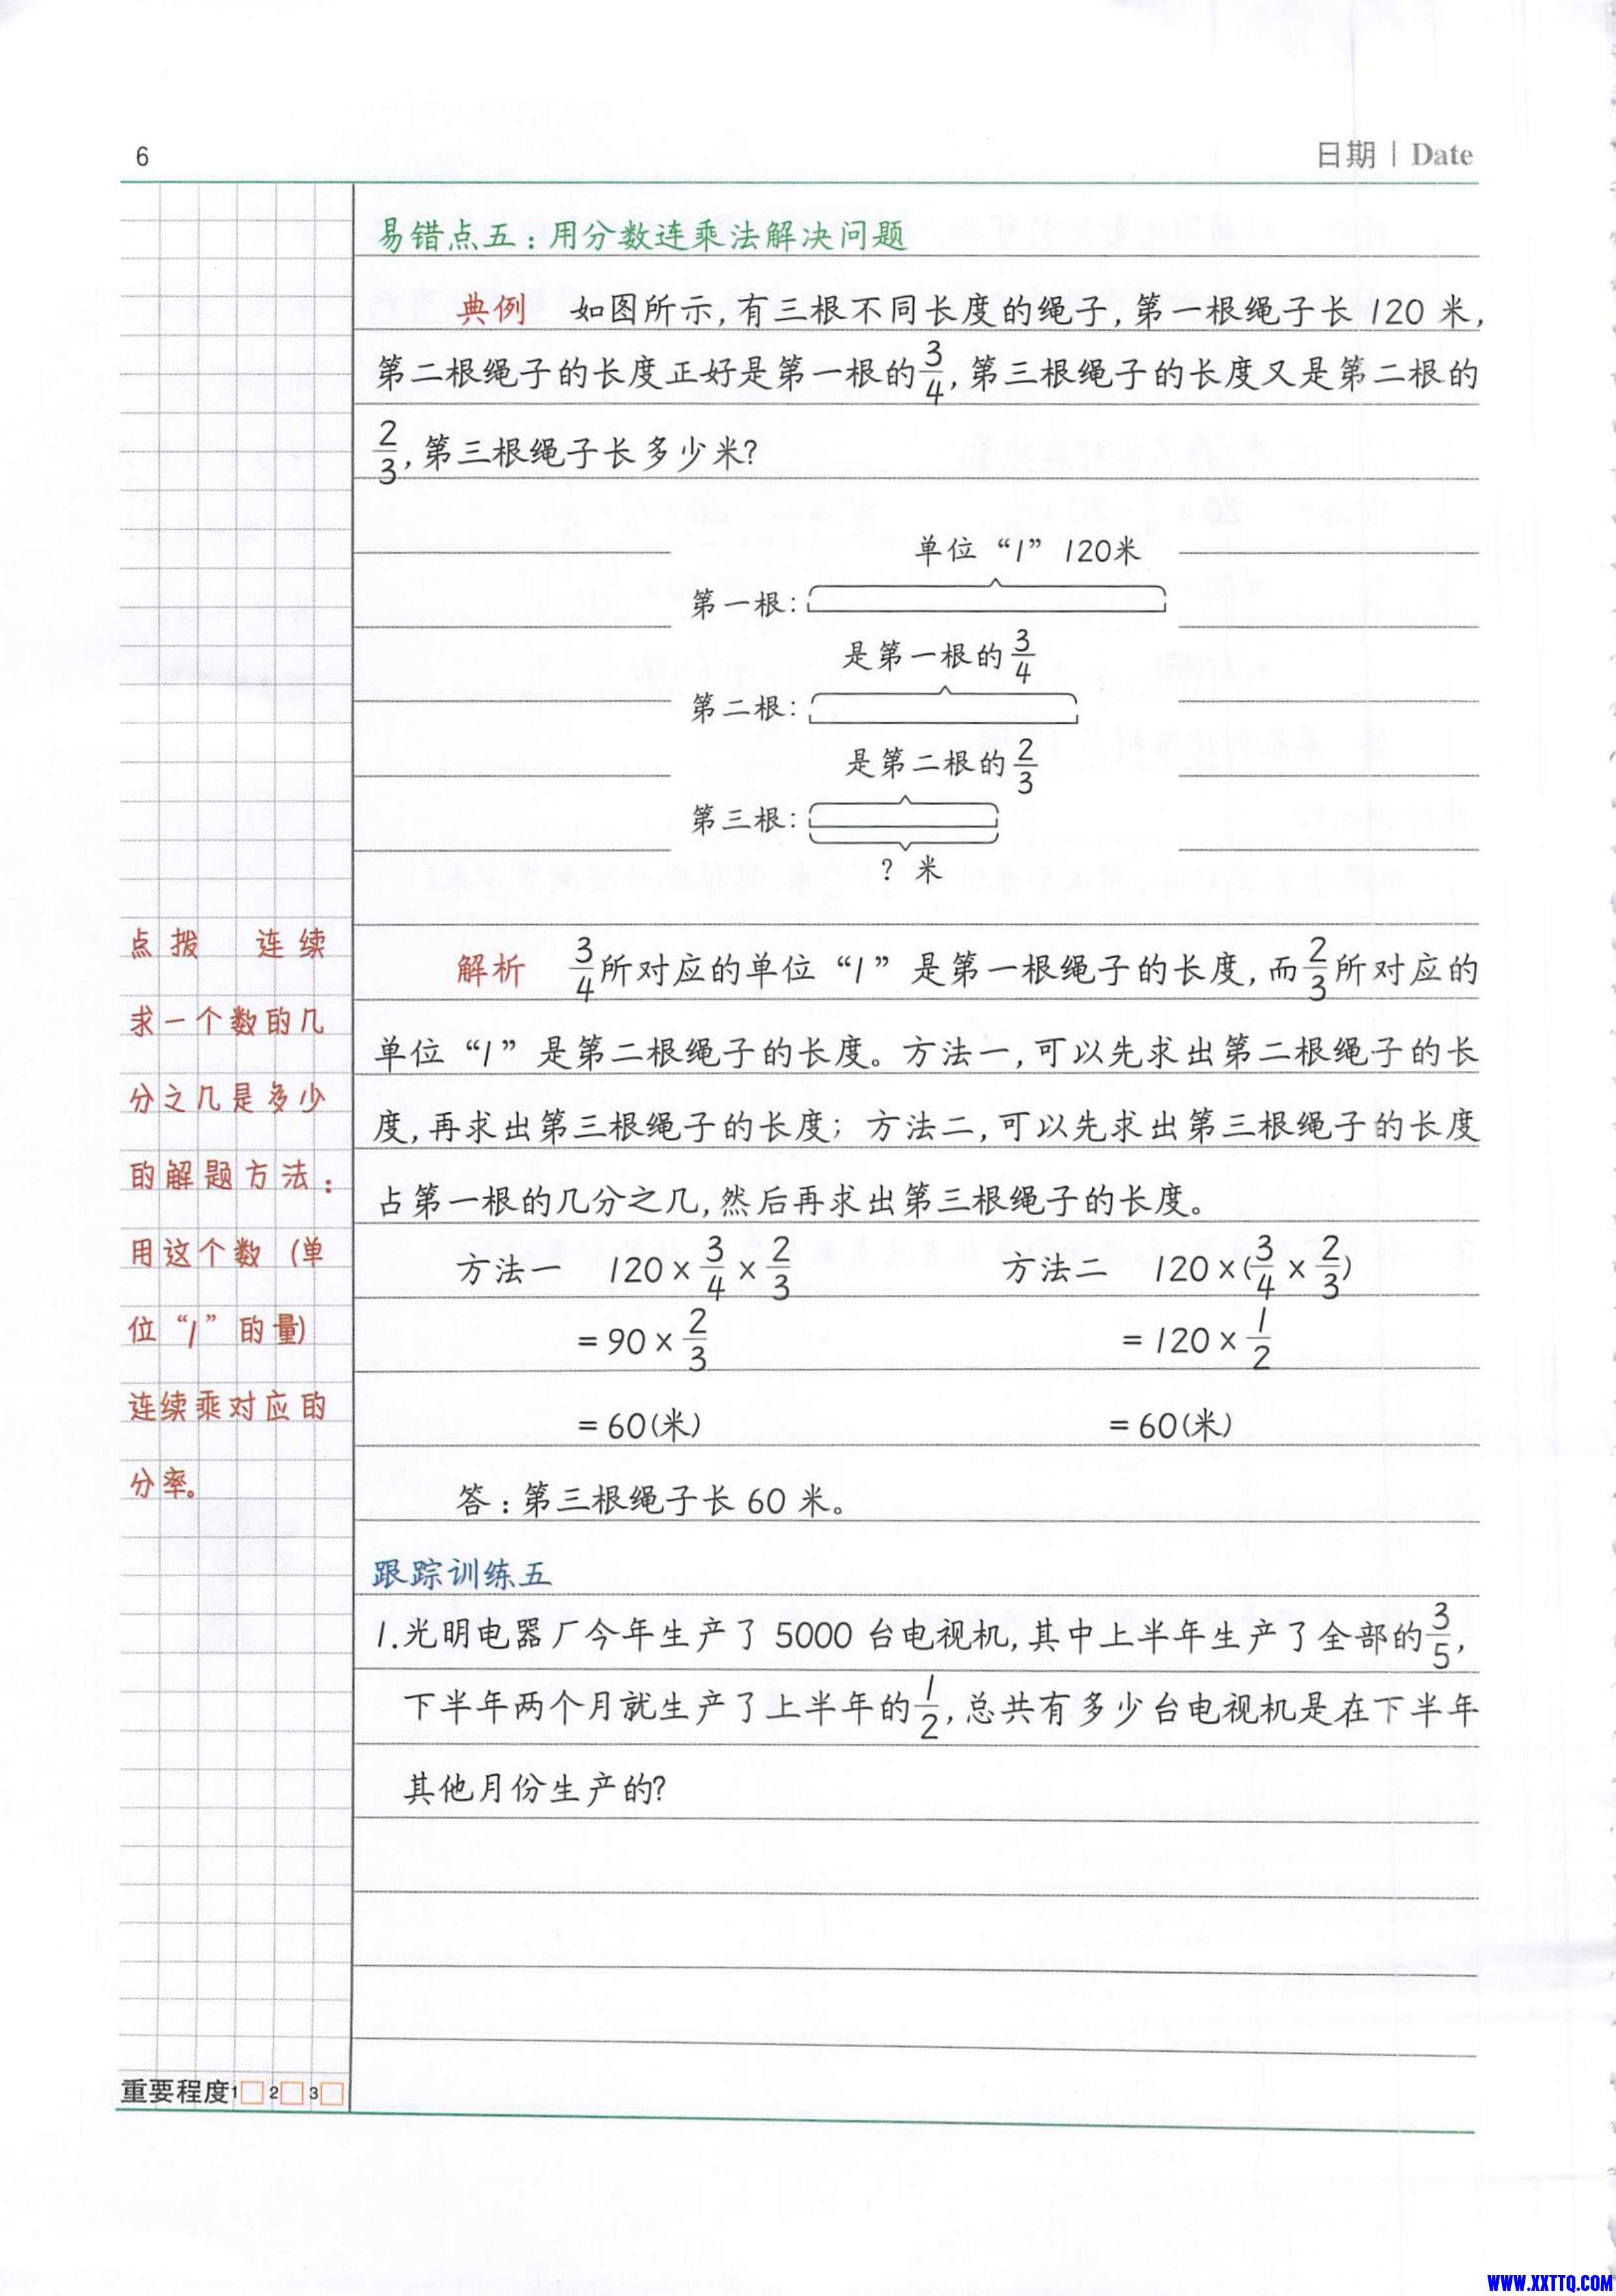 6
日期 | Date
易错点五：用分数连乘法解决问题
典例 如图所示,有三根不同长度的绳子,第一根绳子长 120 米,
第二根绳子的长度正好是第一根的3/4,第三根绳子的长度又是第二根的
2/3,第三根绳子长多少米?
单位“1”120米
第一根:
是第一根的3/4
第二根:
是第二根的2/3
第三根:
? 米
点拨 连续
求一个数的几
分之几是多少
的解题方法:
用这个数(单
位“1”的量)
连续乘对应的
分率。
解析 3/4所对应的单位“1”是第一根绳子的长度,而2/3所对应的
单位“1”是第二根绳子的长度。方法一,可以先求出第二根绳子的长
度,再求出第三根绳子的长度;方法二,可以先求出第三根绳子的长度
占第一根的几分之几,然后再求出第三根绳子的长度。
方法一 120×3/4×2/3 方法二 120×(3/4×2/3)
=90×2/3 =120×1/2
=60(米) =60(米)
答:第三根绳子长 60 米。
跟踪训练五
1.光明电器厂今年生产了 5000 台电视机,其中上半年生产了全部的3/5,
下半年两个月就生产了上半年的1/2,总共有多少台电视机是在下半年
其他月份生产的?
重要程度1□ 2□ 3□
WWW.XXTTQ.COM